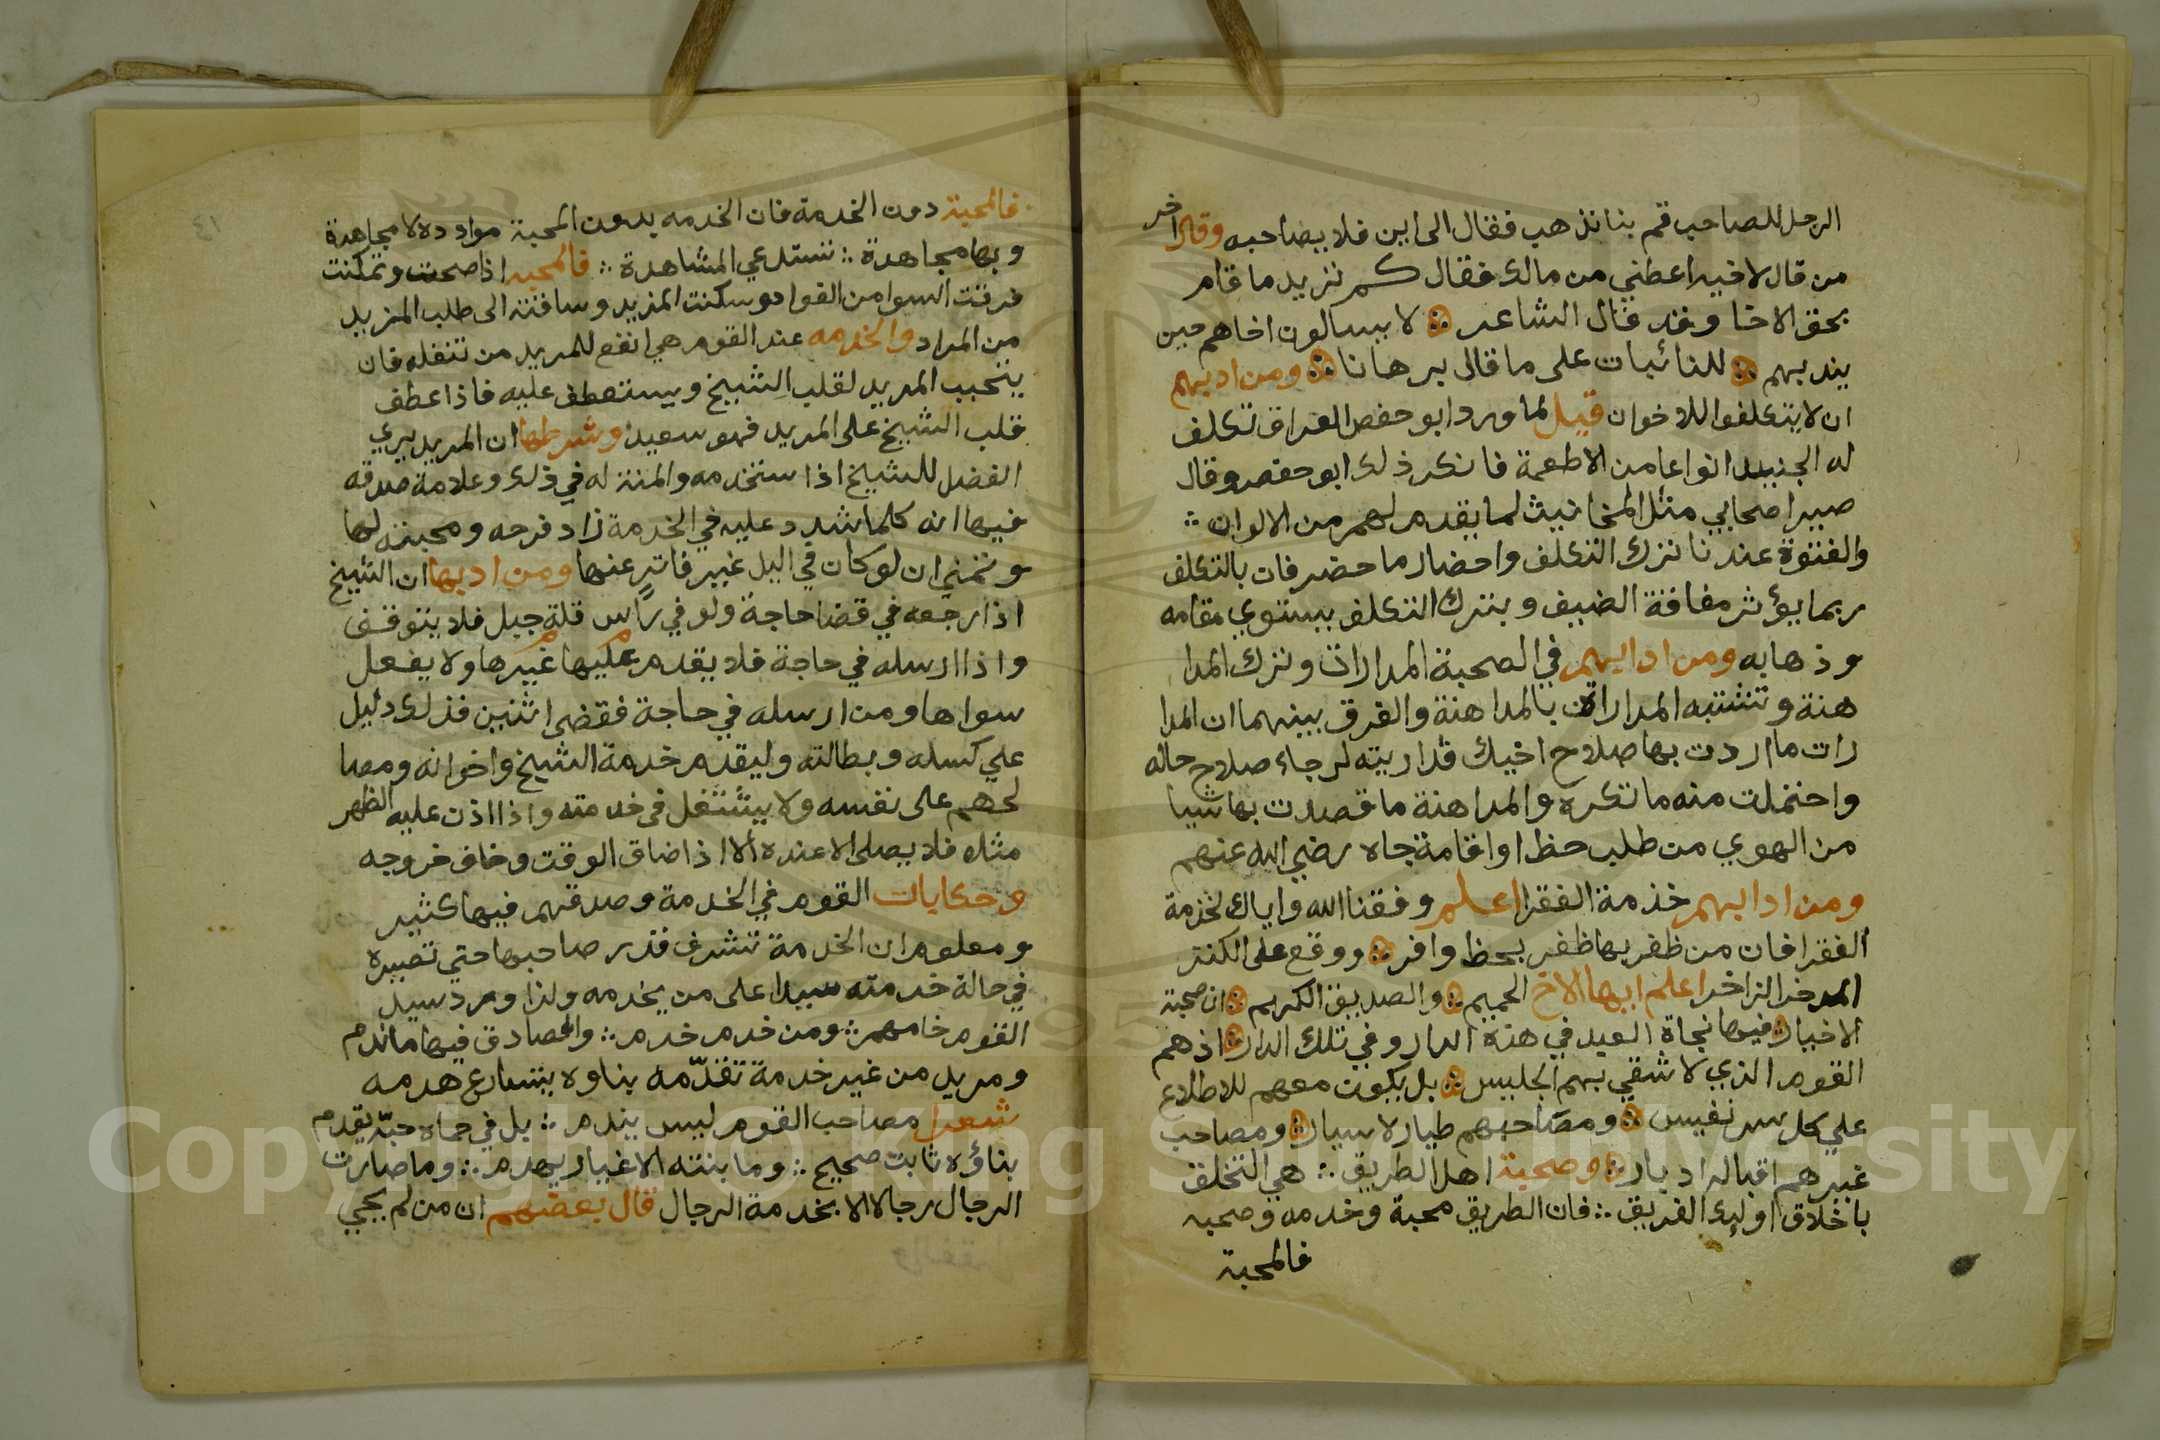 الرجل للصاحب قم بنا نذهب فقال الى اين فلا يصاحبه وقال اخر
من قال لاخيه اعطني من مالك فقال كم تزيد ما قام
بحق الاخا وقد قال الشاعر لا يسالون اخاهم حين
يندبهم للنائبات على ما قال برهانا ومن ادبهم
ان لا يتكلفوا للاخوان قيل لما ورد ابو حفص العراق تكلف
له الجنيد انواعا من الاطعمة فانكر ذلك ابو حفص وقال
صير اصحابي مثل المخانيث لما يقدم لهم من الالوان
والفتوة عندنا ترك التكلف واحضار ما حضر فان بالتكلف
ربما يؤثر مفاقة الضيف وبترك التكلف يستوي مقامه
وذهابه ومن ادابهم في الصحبة المدارات وترك المدا
هنة وتشتبه المدارات بالمداهنة والفرق بينهما ان المدا
رات ما اردت بها صلاح اخيك فداريته لرجاء صلاح حاله
واحتملت منه ما تكره والمداهنة ما قصدت بها شيا
من الهوي من طلب حظ او اقامة جاه رضي الله عنهم
ومن ادابهم خدمة الفقرا اعلم وفقنا الله واياك لخدمة
الفقرا فان من ظفر بها ظفر بحظ وافر ووقع على الكنز
المدخر الزاخر اعلم ايها الاخ الحميم والصديق الكريم ان صحبة
الاخيار فيها نجاة العبد في هذه الدار وفي تلك الدار اذ هم
القوم الذي لا شقي بهم الجليس بل يكون معهم للاطلاع
علي كل سر نفيس ومصاحبهم طيار لا سيار ومصاحب
غيرهم اقباله ادبار وصحبة اهل الطريق هي التخلق
باخلاق اوليك الفريق فان الطريق محبة وخدمه وصحبه
فالمحبة
فالمحبة دون الخدمة فان الخدمه بدون المحبة مواددة لا مجاهدة
وبها مجاهدة تستدعي المشاهدة فالمحبه اذا صحت وتمكنت
فرقت السوا من الفواد وسكنت المزيد وساقته الى طلب المزيد
من المراد والخدمه عند القوم هي انفع للمريد من تنفله فان
يتحبب المريد لقلب الشيخ ويستعطف عليه فاذا عطف
قلب الشيخ على المريد فهو سعيد وشرطها ان المريد يري
الفضل للشيخ اذا استخدمه والمنة له في ذلك وعلامة صدقه
فيها انه كلما شدد عليه في الخدمة زاد فرحه ومحبته لها
وتمني ان لو كان في اليل غير فاتر عنها ومن ادبها ان الشيخ
اذا رجعه في قضا حاجة ولو في راس قلة جبل فلا يتوقف
واذا ارسله في حاجة فلا يقدم عليها غيرها ولا يفعل
سواها ومن ارسله في حاجة فقضى اثنين فذلك دليل
علي كسله وبطالته وليقدم خدمة الشيخ واخوانه ومصا
لحهم على نفسه ولا يشتغل في خدمته واذا اذن عليه الظهر
مثلا فلا يصلى الا عنده الا اذا ضاق الوقت وخاف خروجه
وحكايات القوم في الخدمة وصدقهم فيها كثير
ومعلوم ان الخدمة تشرف قدر صاحبها حتي تصيره
في حالة خدمته سيدا على من يخدمه ولذا ورد سيد
القوم خامهم ومن خدم خدم والصادق فيها ما ندم
ومريد من غير خدمة تقدّمه بناوه يتسارع هدمه
شعر مصاحب القوم ليس يندم بل في حماه حبّه يقدم
بناؤه ثابت صحيح وما بنته الاغيار يهدم وما صارت
الرجال رجالا الا بخدمة الرجال قال بعضهم ان من لم يجي
Copyright © King Saud University